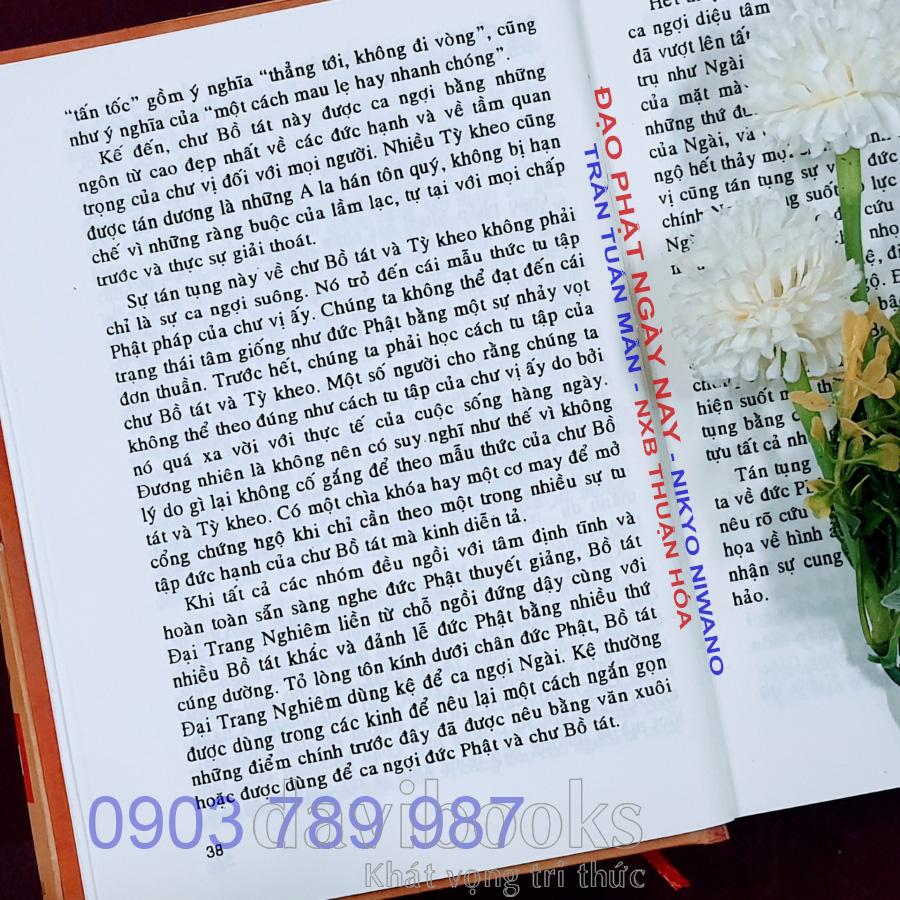 “tấn tốc” gồm ý nghĩa “thẳng tới, không đi vòng”, cũng
như ý nghĩa của “một cách mau lẹ hay nhanh chóng”.
Kế đến, chư Bồ tát này được ca ngợi bằng những
ngôn từ cao đẹp nhất về các đức hạnh và về tầm quan
trọng của chư vị đối với mọi người. Nhiều Tỳ kheo cũng
được tán dương là những A la hán tôn quý, không bị hạn
chế vì những ràng buộc của lầm lạc, tự tại với mọi chấp
trước và thực sự giải thoát.
Sự tán tụng này về chư Bồ tát và Tỳ kheo không phải
chỉ là sự ca ngợi suông. Nó trỏ đến cái mẫu thức tu tập
Phật pháp của chư vị ấy. Chúng ta không thể đạt đến cái
trạng thái tâm giống như đức Phật bằng một sự nhảy vọt
đơn thuần. Trước hết, chúng ta phải học cách tu tập của
chư Bồ tát và Tỳ kheo. Một số người cho rằng chúng ta
không thể theo đúng như cách tu tập của chư vị ấy do bởi
nó quá xa vời với thực tế của cuộc sống hàng ngày.
Đương nhiên là không nên có suy nghĩ như thế vì không
lý do gì lại không cố gắng để theo mẫu thức của chư Bồ
tát và Tỳ kheo. Có một chìa khóa hay một cơ may để mở
cổng chứng ngộ khi chỉ cần theo một trong nhiều sự tu
tập đức hạnh của chư Bồ tát mà kinh diễn tả.
Khi tất cả các nhóm đều ngồi với tâm định tĩnh và
hoàn toàn sẵn sàng nghe đức Phật thuyết giảng, Bồ tát
Đại Trang Nghiêm liền từ chỗ ngồi đứng dậy cùng với
nhiều Bồ tát khác và đảnh lễ đức Phật bằng nhiều thứ
cúng dường. Tỏ lòng tôn kính dưới chân đức Phật, Bồ tát
Đại Trang Nghiêm dùng kệ để ca ngợi Ngài. Kệ thường
được dùng trong các kinh để nêu lại một cách ngắn gọn
những điểm chính trước đây đã được nêu bằng văn xuôi
hoặc được dùng để ca ngợi đức Phật và chư Bồ tát.
38
ca ngợi diệu tâm
đã vượt lên tất
trụ như Ngài
của mặt mà
những thứ đ
của Ngài, và
ngộ hết thảy mọi đức
vị cũng tán tụng sự v
chính suốt lực
cứu
hiện suốt
tụng bằng
tựu tất cả nh
Tán tụng
ta về đức P
nêu rõ cứu
họa về hình
nhận sự cung
hảo.
ĐẠO PHẬT NGÀY NAY - NIKYO NIWANO
TRẦN TUẤN MẪN - NXB THUẬN HÓA
0903 789 987
davibooks
Khát vọng tri thức